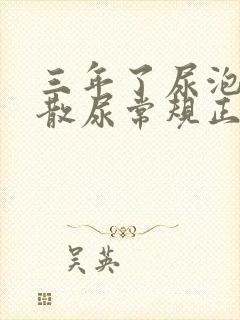 三年了尿泡
散尿常规正
吴英